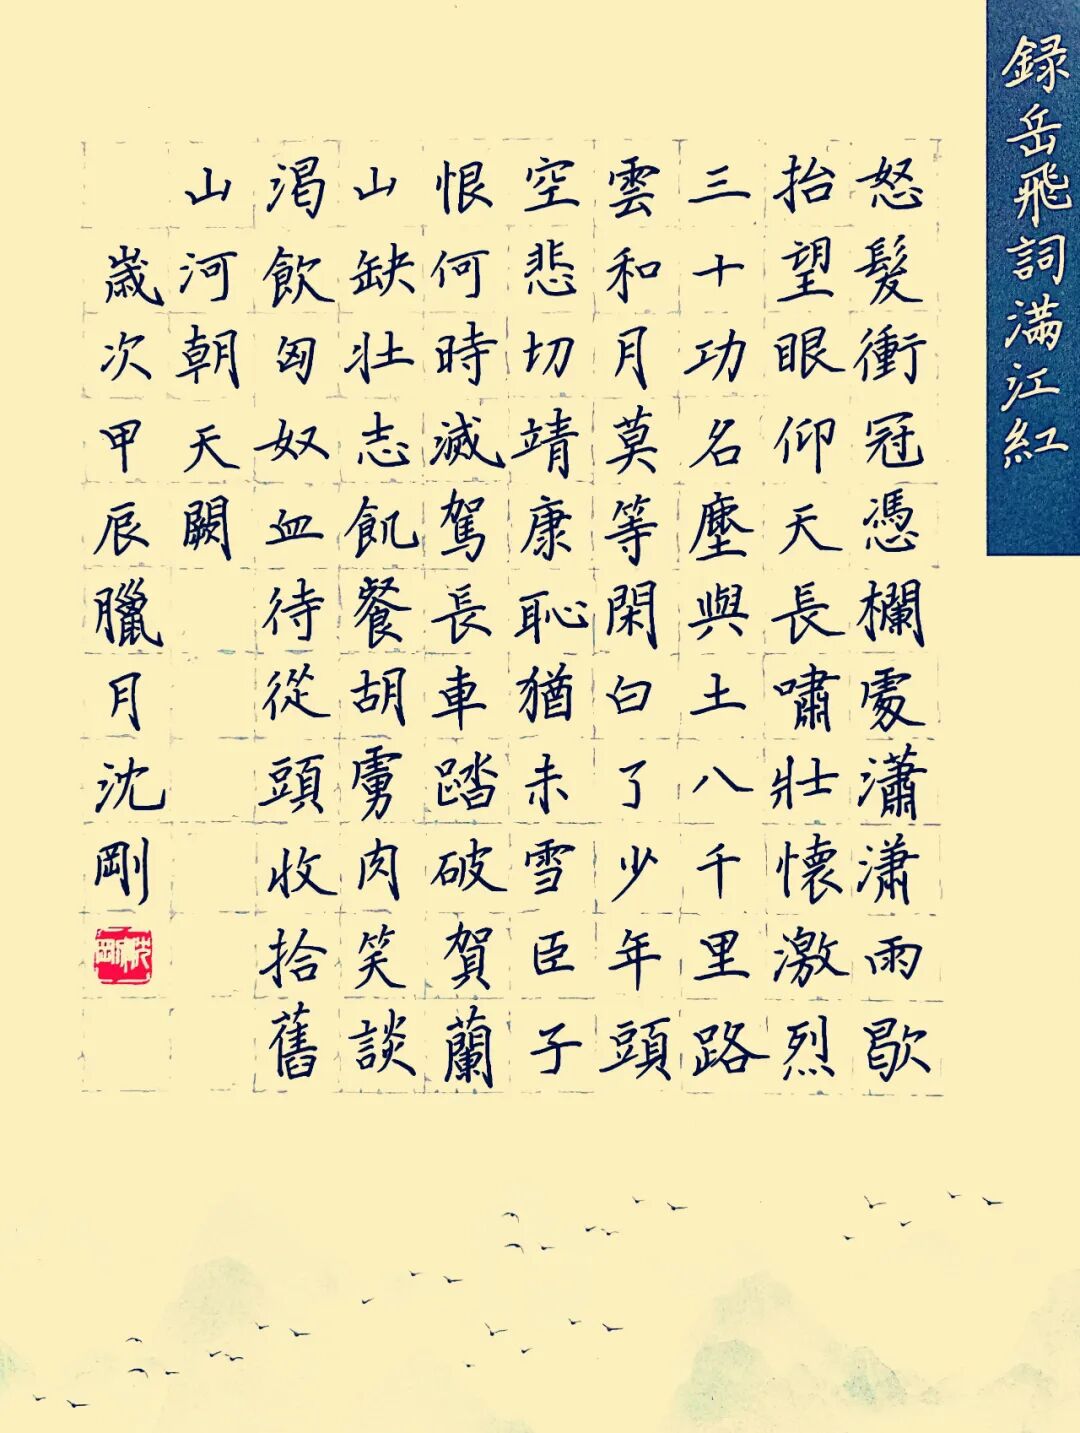 録岳飛詞滿江紅
怒髮衝冠憑欄處瀟瀟雨歇
抬望眼仰天長嘯壯懷激烈
三十功名塵與土八千里路
雲和月莫等閑白了少年頭
空悲切靖康恥猶未雪臣子
恨何時滅駕長車踏破賀蘭
山缺壯志飢餐胡虜肉笑談
渴飲匈奴血待從頭收拾舊
山河朝天闕
歲次甲辰臘月沈剛
沈剛